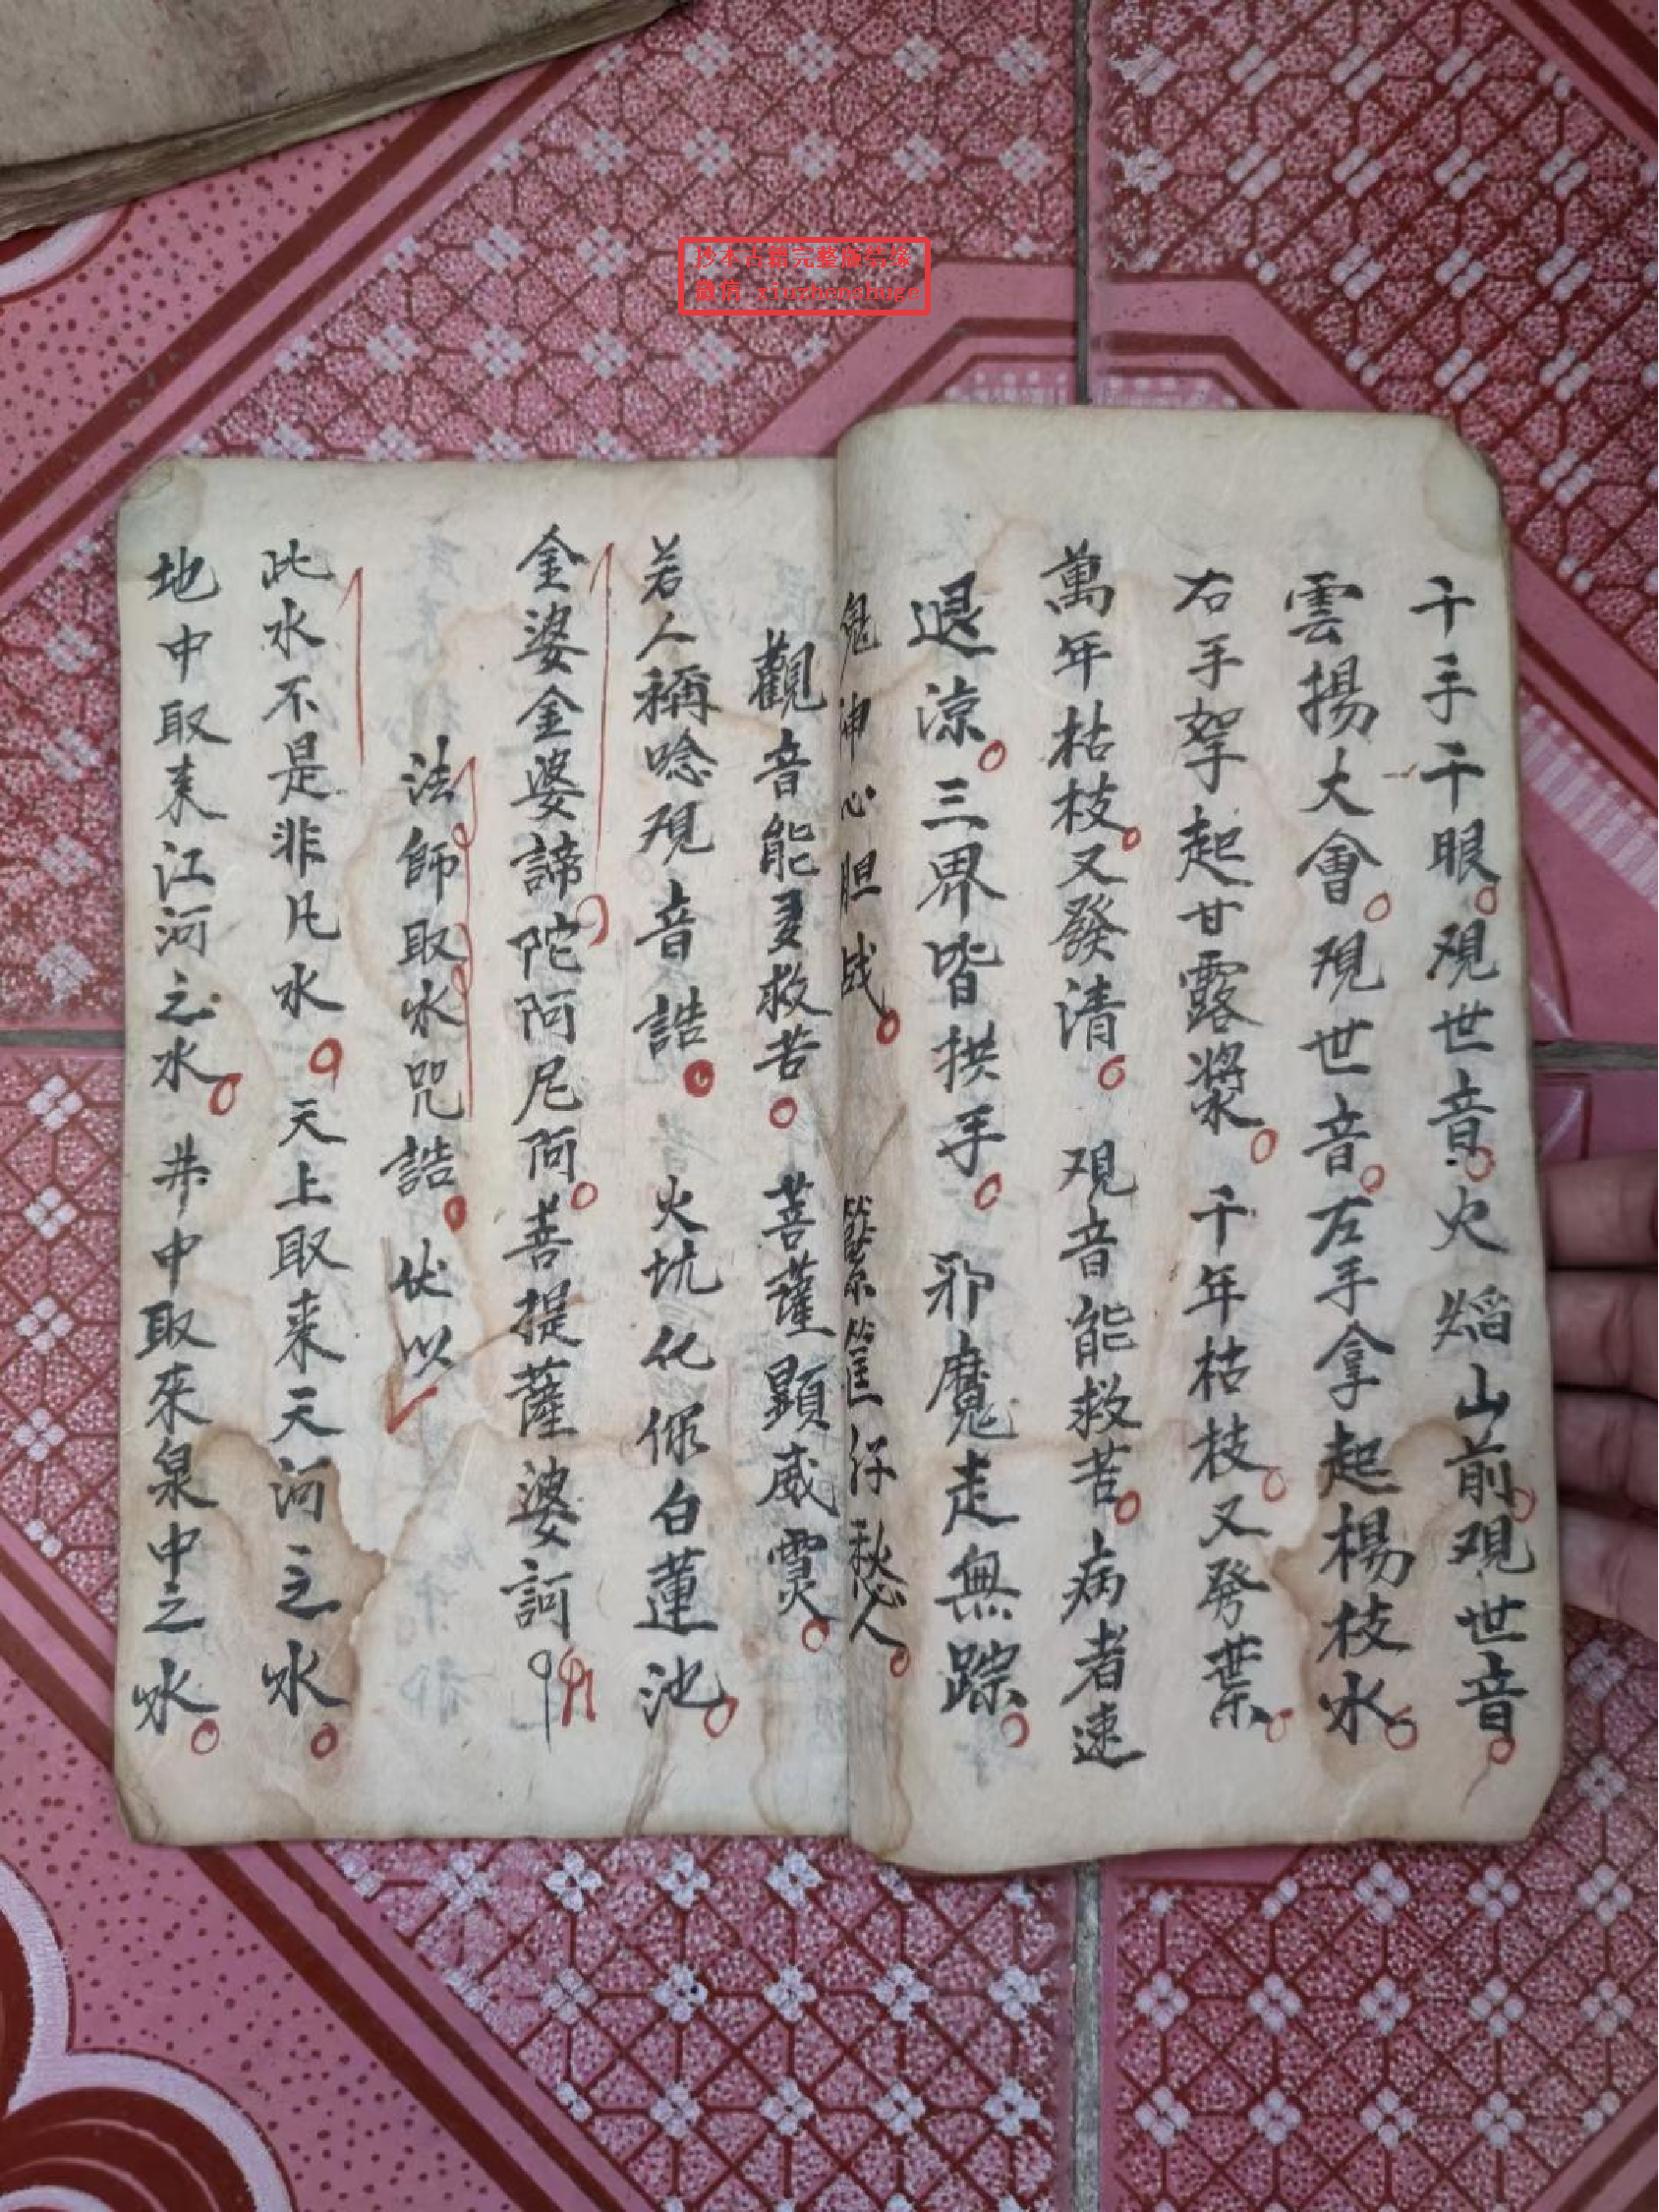 抄本古籍完整版结缘
微信 siuzhenshuge
千手千眼观世音火焰山前观世音
雲揚大會观世音左手拿起楊枝水
右手拏起甘露漿千年枯枝又發葉
萬年枯枝又發清观音能救苦病者速
退凉三界皆拱手邪魔走無踪
鬼神心胆战
觀音能救苦菩薩顕威灵
若人稱唸观音誥火坑化作白蓮池
金婆金婆諦陀阿尼阿菩提薩婆訶
法師取水咒誥伏以
此水不是非凡水天上取来天河之水
地中取来江河之水井中取來泉中之水